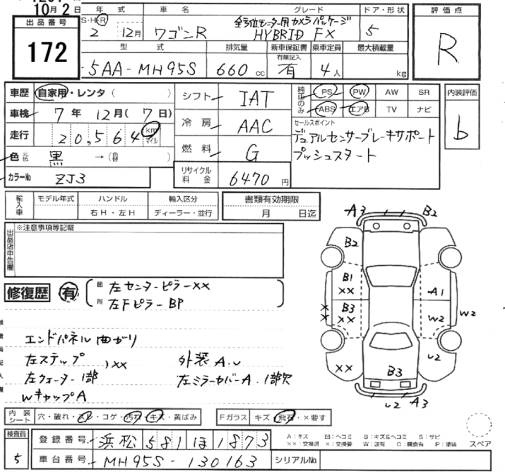 10月2
出品番号 年 式 車 名 グレード ドア・形状 評 価 点
172
S・H・R 2年 12月 ワゴンR 全方位モニター用カメラパッケージ HYBRID FX 5 R
型 式 排気量 新車保証書 乗車定員 最大積載量
5AA-MH95S 660 cc 有 4人 kg
車歴 自家用・レンタ ( ) シフト IAT 純正のみ PS PW AW SR 内装評価
車検 7年 12月 (7日) ABS エアB TV ナビ b
走行 20,564 km マイル 冷房 AAC セールスポイント
デュアルセンサーブレーキサポート
色 黒 → 燃料 G プッシュスタート
カラーNo ZJ3 リサイクル料金 6470円
輸入車 モデル年式 ハンドル 輸入区分 書類有効期限
右H・左H ディーラー・並行 月 日迄
※注意事項等記載
出品店申告欄
修復歴 有 左センターピラーxx
左Fピラー BP
エンドパネル曲がり
左ステップ ,xx 外装A.U
左クォーター1部 左ミラーカバーA.1部欠
WキャップA
A3 B2
B2
B1 xx A1
B3 xx xx W2 W2
U2
B3
U2 A3
内装シート 穴・破れ・コゲ・キズ・黄ばみ Fガラス キズ 飛石 ×要す
検査員 5 登録番号 浜松581ほ1873 スペア
車台番号 MH95S-130163 シリアルNo